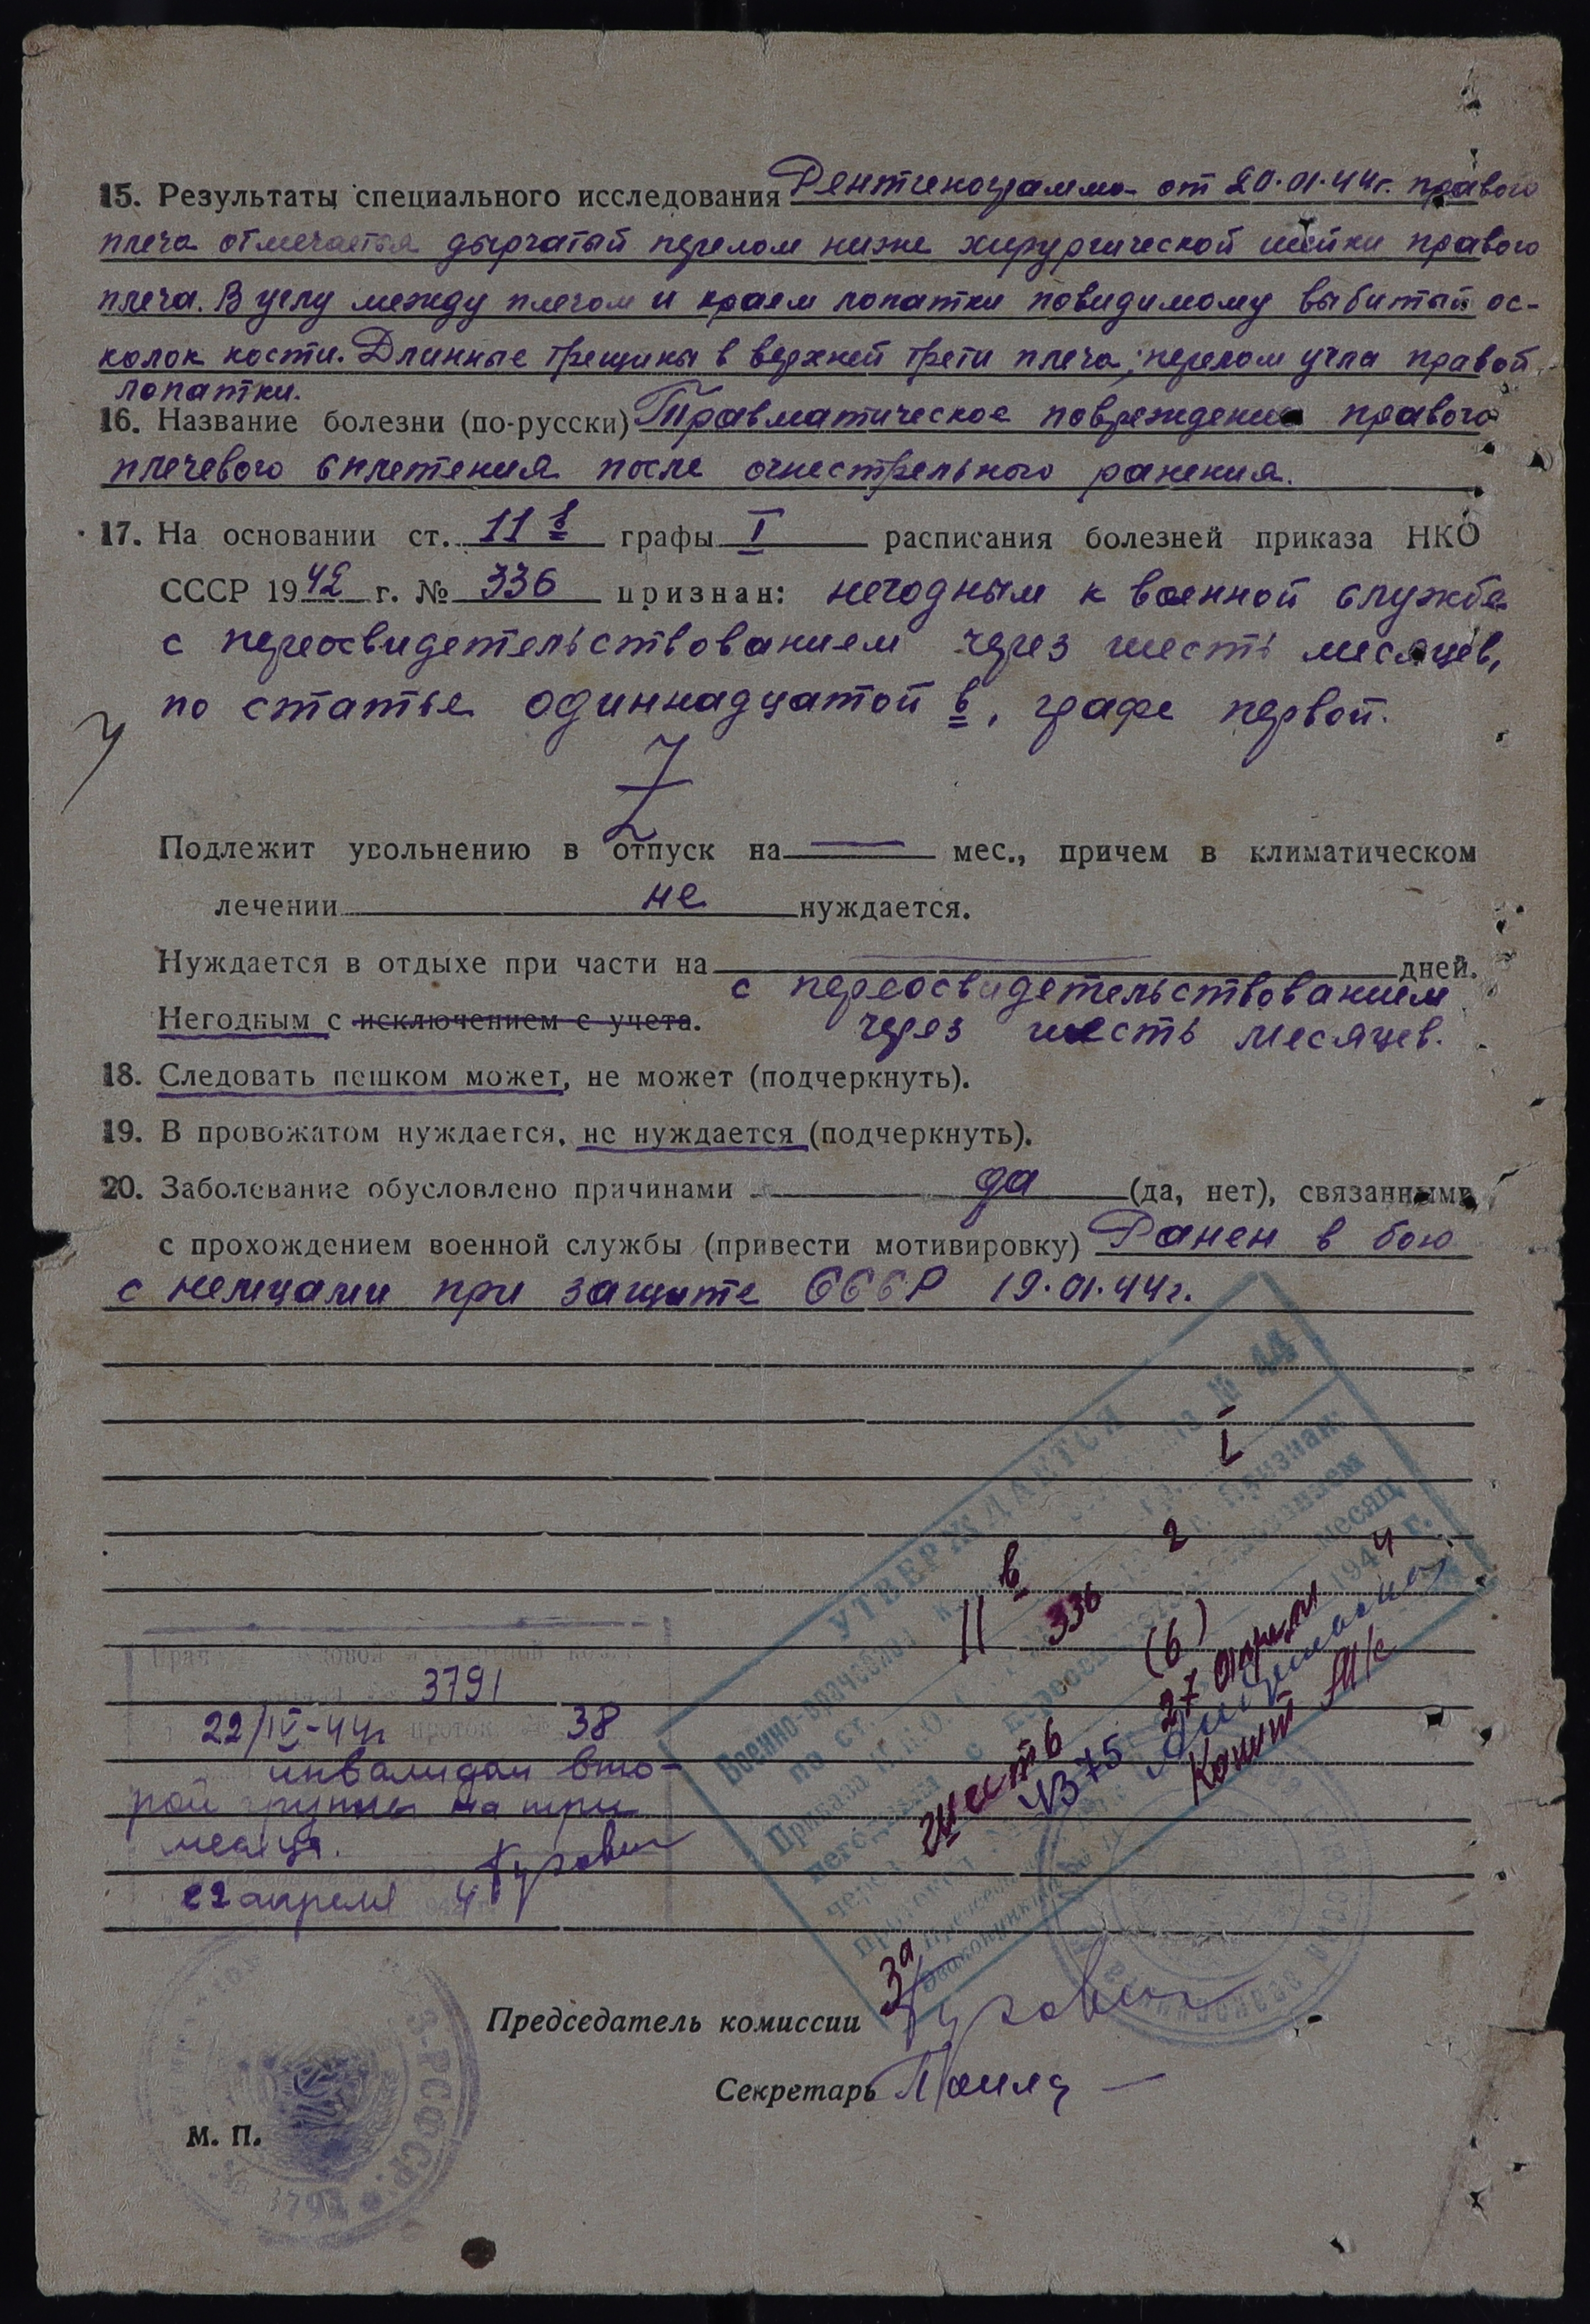 15. Результаты специального исследования Рентгенограмма от 20.01.44г. правого
плеча отмечается дырчатый перелом ниже хирургической шейки правого
плеча. В углу между плечом и краем лопатки повидимому выбитый ос-
колок кости. Длинные трещины в верхней трети плеча; перелом угла правой
лопатки.
16. Название болезни (по-русски) Травматическое повреждение правого
плечевого сплетения после огнестрельного ранения.
17. На основании ст. 11 в графы I расписания болезней приказа НКО
СССР 1942 г. № 336 признан: негодным к военной службе
с переосвидетельствованием через шесть месяцев,
по статье одиннадцатой в, графе первой.
Подлежит увольнению в отпуск на — мес., причем в климатическом
лечении не нуждается.
Нуждается в отдыхе при части на — дней.
с переосвидетельствованием
Негодным с исключением с учета. через шесть месяцев.
18. Следовать пешком может, не может (подчеркнуть).
19. В провожатом нуждается, не нуждается (подчеркнуть).
20. Заболевание обусловлено причинами да (да, нет), связанными
с прохождением военной службы (привести мотивировку) Ранен в бою
с немцами при защите СССР 19.01.44г.
УТВЕРЖДАЕТСЯ
№ 44
I
по ст. 11 в
Приказа НКО 336 2 г. признан
с переосвидетельствованием
через шесть (6) месяц
27 апреля 1944 г.
№375
3791
22/IV-44г проток. № 38
инвалидом вто-
рой группы на три
месяца.
22 апреля 4
За
Председатель комиссии
Секретарь
М. П.
РСФСР
3791